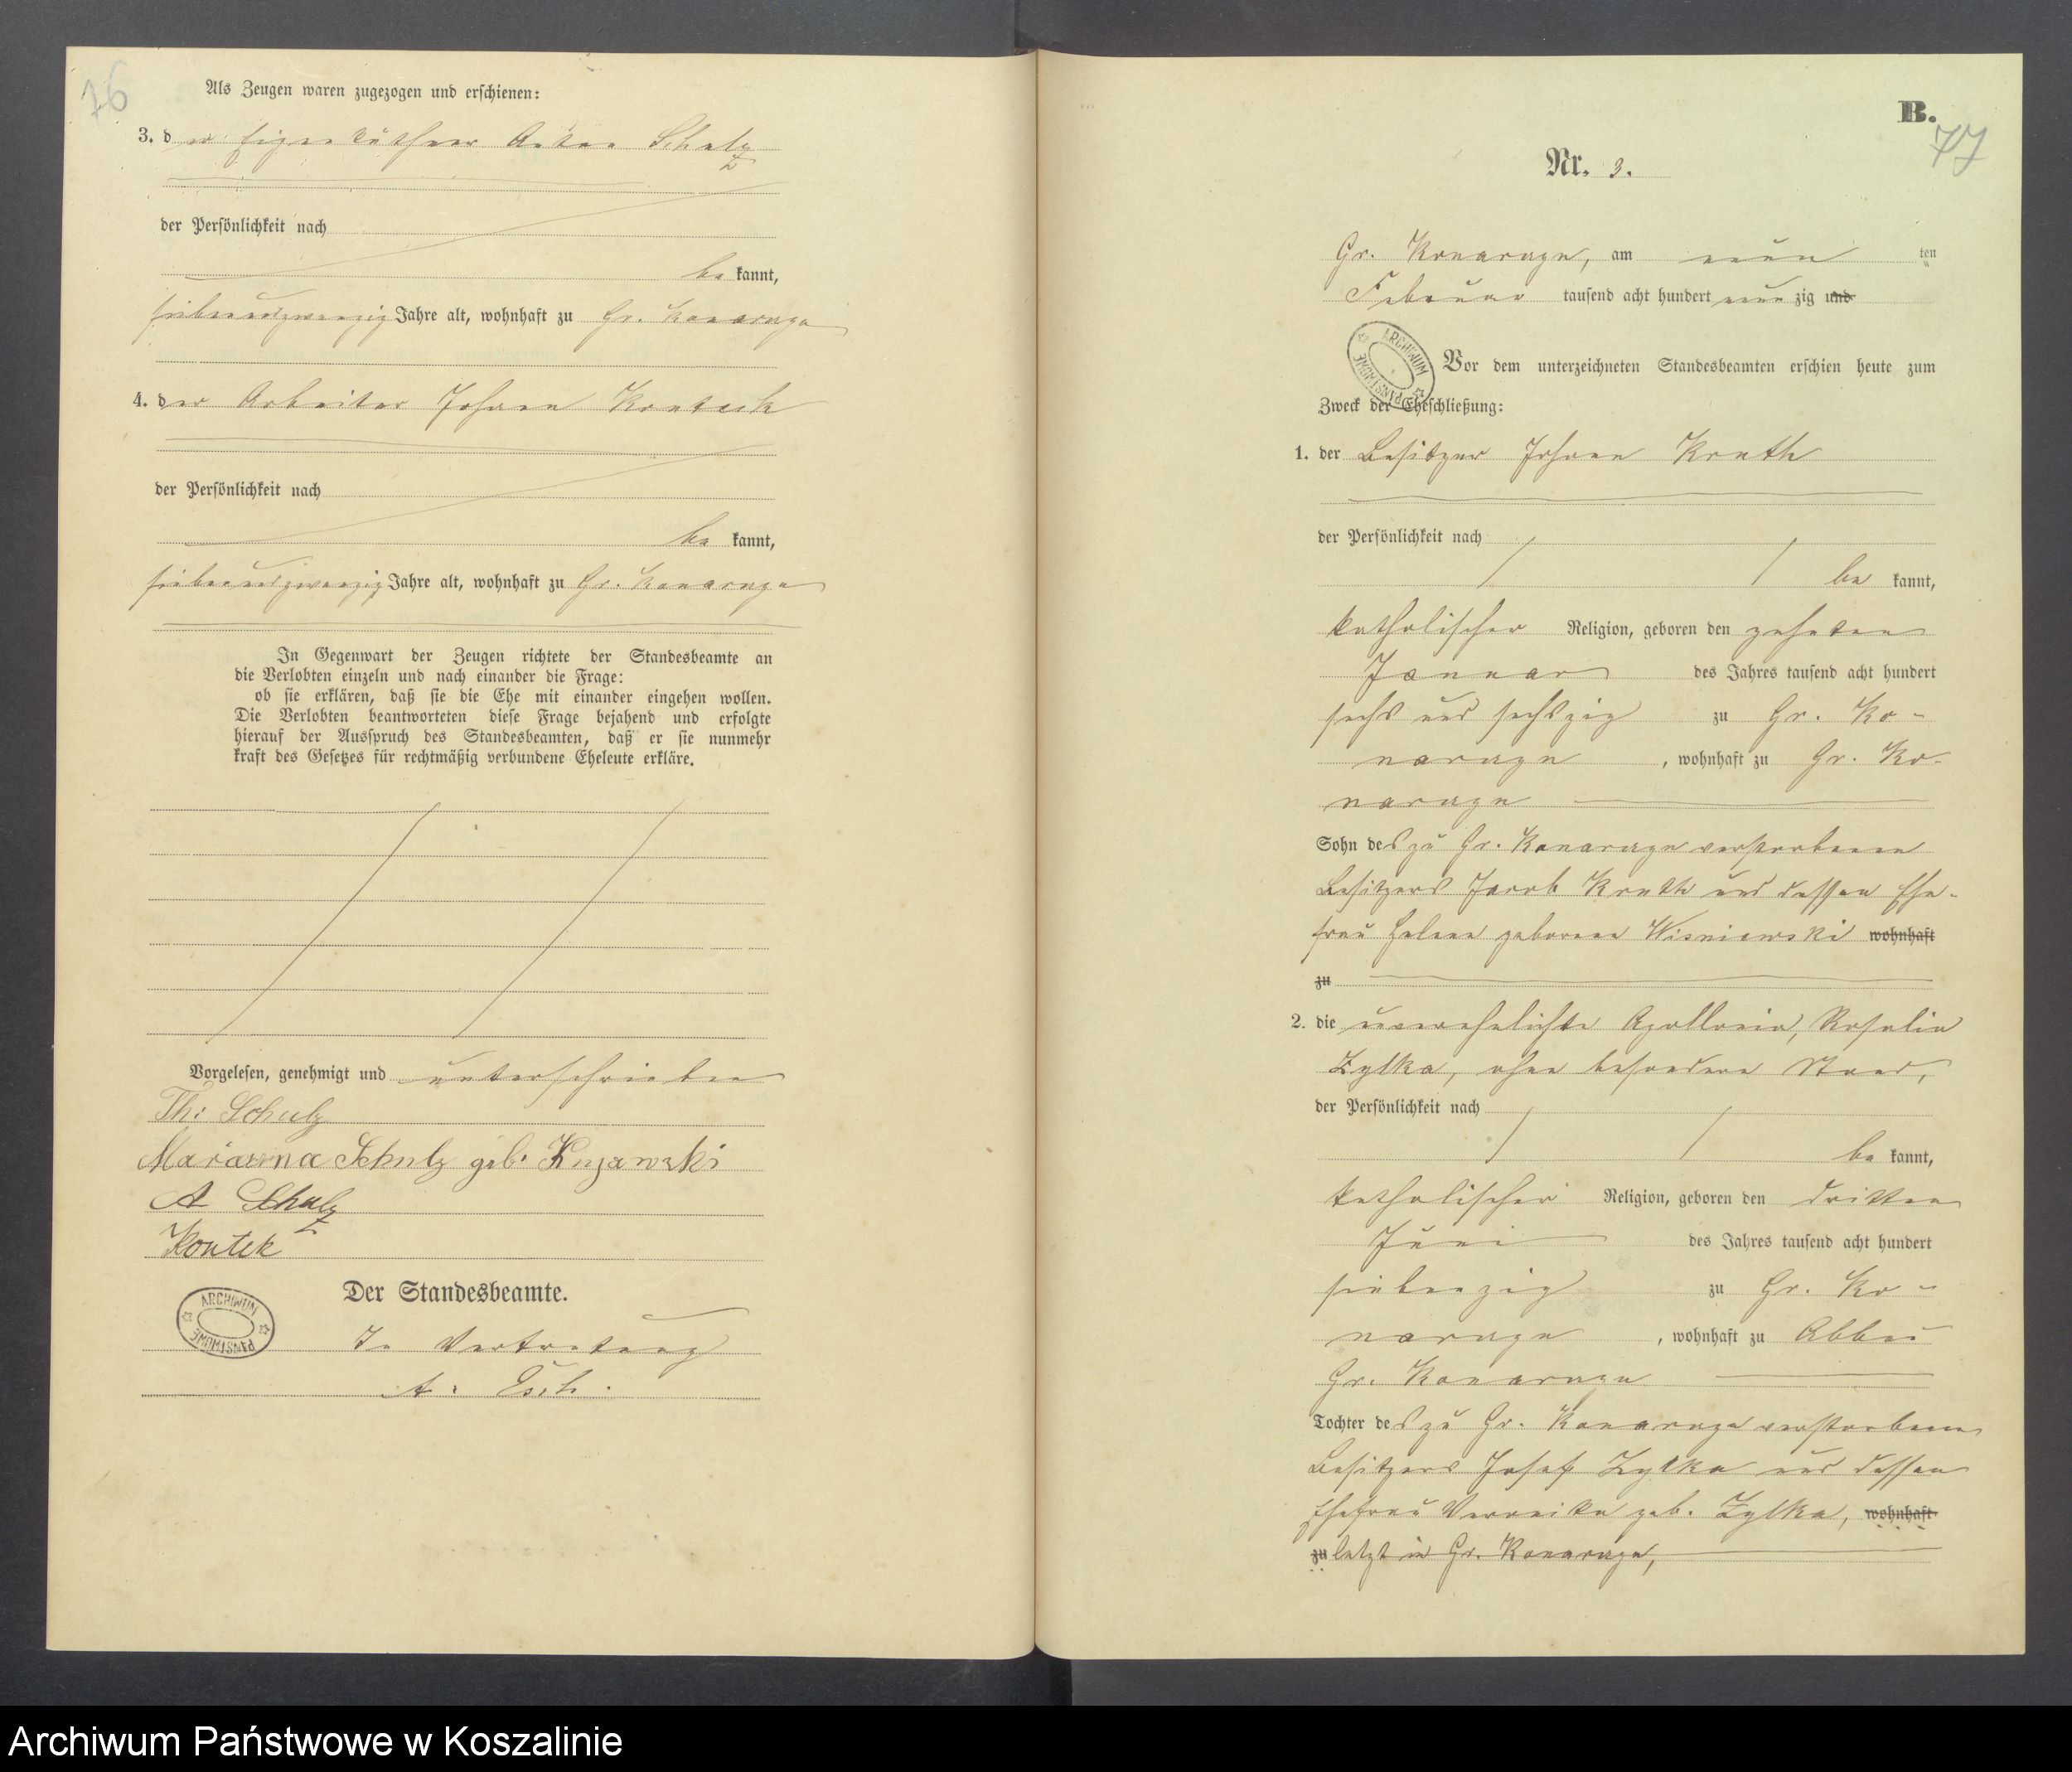 76
Als Zeugen waren zugezogen und erschienen:
3. der Eigenthümer Anton Schulz
der Persönlichkeit nach
be kannt,
siebenundzwanzig Jahre alt, wohnhaft zu Gr. Konarczyn
4. der Arbeiter Johann Kontek
der Persönlichkeit nach
be kannt,
siebenundzwanzig Jahre alt, wohnhaft zu Gr. Konarczyn
In Gegenwart der Zeugen richtete der Standesbeamte an
die Verlobten einzeln und nach einander die Frage:
ob sie erklären, daß sie die Ehe mit einander eingehen wollen.
Die Verlobten beantworteten diese Frage bejahend und erfolgte
hierauf der Ausspruch des Standesbeamten, daß er sie nunmehr
kraft des Gesetzes für rechtmäßig verbundene Eheleute erkläre.
Vorgelesen, genehmigt und unterschrieben
Th: Schulz
Marianna Schulz geb. Kujawski
A Schulz
Kontek
Der Standesbeamte.
ARCHIWUM PAŃSTWOWE
In Vertretung
B.
77
Nr. 3.
Gr. Konarczyn, am neun ten
Februar tausend acht hundert neun zig und
ARCHIWUM PAŃSTWOWE
Vor dem unterzeichneten Standesbeamten erschien heute zum
Zweck der Eheschließung:
1. der Besitzer Johann
der Persönlichkeit nach
be kannt,
katholischer Religion, geboren den zehnten
Januar des Jahres tausend acht hundert
sechs und sechszig zu Gr. Ko-
narczyn, wohnhaft zu Gr. Ko-
narczyn
Sohn des zu Gr. Konarczyn verstorbenen
Besitzers Jacob und dessen Ehe-
frau Helene geborene Wisniewski wohnhaft
zu
2. die unverehelichte Apollonia, Rosalia
Zylka, ohne besondern Stand,
der Persönlichkeit nach
be kannt,
katholischer Religion, geboren den dritten
Juni des Jahres tausend acht hundert
siebenzig zu Gr. Ko-
narczyn, wohnhaft zu Abbau
Gr. Konarczyn
Tochter des zu Gr. Konarczyn verstorbenen
Besitzers Josef Zylka und dessen
Ehefrau Veronika geb. Zylka, wohnhaft
zuletzt in Gr. Konarczyn,
Archiwum Państwowe w Koszalinie